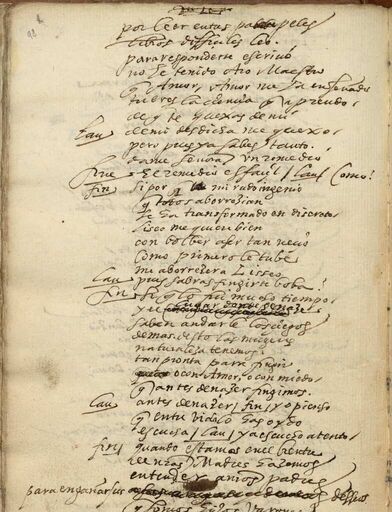 por leer en tus papeles
libros difficiles leo.
para responderte escriuo
no he tenido otro Maestro
q̃ Amor, Amor me ha enseñado
tu eres la ciencia q̃ aprendo.
de q̃ te quexas de mi
Lau de mi desdicha me quexo.
pero pues ya sabes tanto.
dame señora vn remedio
fine El remedio es facil / Lau / Como?
fin si por q̃ mi rudo ingenio
q̃ todos aborrezian
se ha transformado en discreto
Liseo me quiere bien
con bolber a ser tan necio
como primero le tube
me aborrecera Liseo
Lau pues sabras fingirte boba?
fin si q̃ lo fui mucho tiempo
y el lugar donde se naze
saben andarle los ciegos
demas desto las mugeres
naturaleza tenemos
tan pronta para fingir
o con Amor, o con miedo
q̃ antes de nazer fingimos.
Lau antes de nazer / fin / yo pienso
q̃ en tu vida lo has oydo
escucha / Lau / ya escucho atento
fin / quando estamos en el vientre
Madres hazemos
entender a padres
para engañar sus desseos
q̃ somos hijos Varones